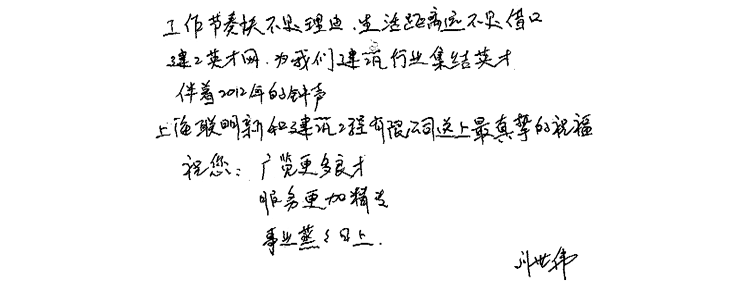 工作节奏快不是理由、生活距离远不是借口
建工英才网、为我们建筑行业集结英才
伴着2012年的钟声
上海联明新和建筑工程有限公司送上最真挚的祝福
祝您：广览更多良才
服务更加精专
事业蒸蒸日上.
世伟